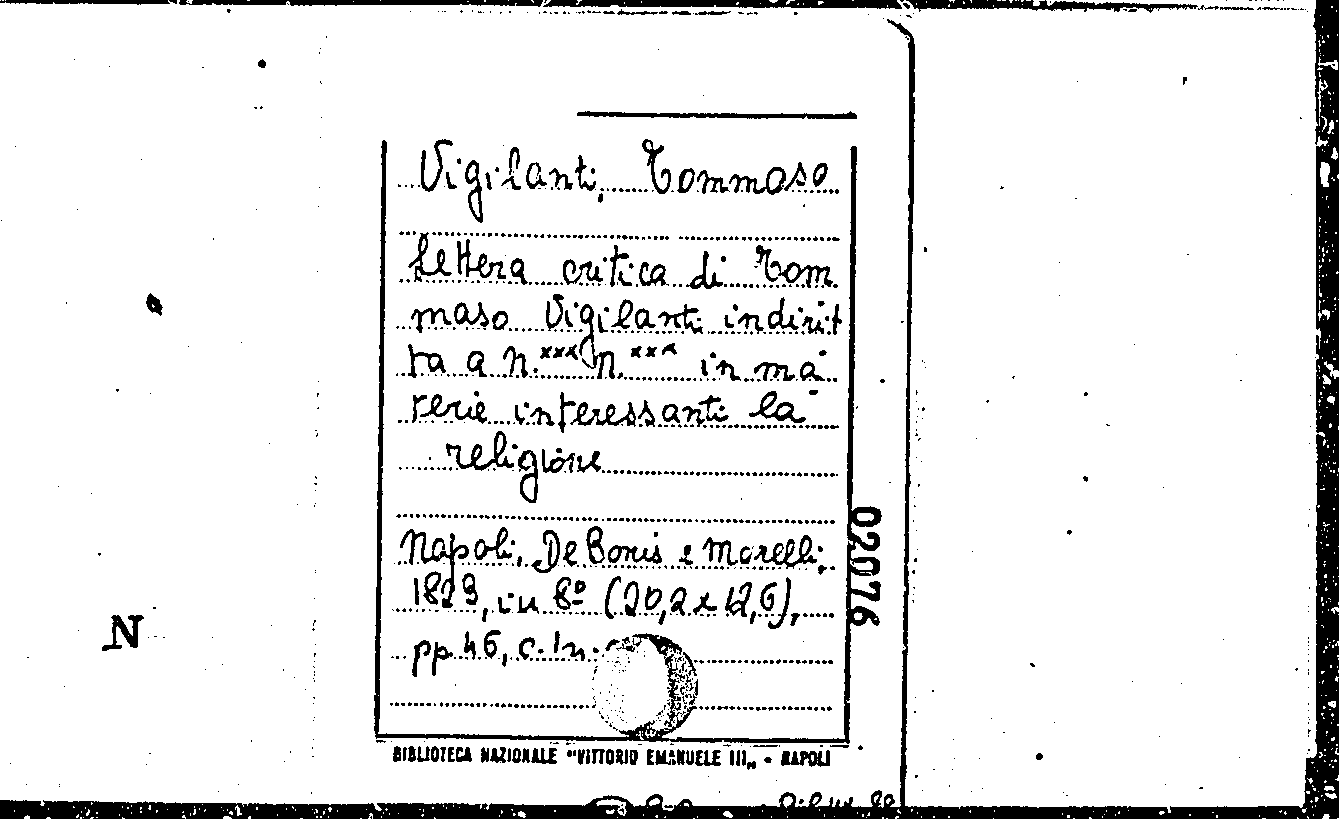 Vigilanti, Tommaso
Lettera critica di Tom
maso Vigilanti indirit
ta a N.xxx N.xxx in ma
terie interessanti la
religione
Napoli, De Bonis e Morelli,
1829, in 8º (20,2 x 12,6),
pp. 46, c. 1 n.
02076
N
BIBLIOTECA NAZIONALE "VITTORIO EMANUELE III„ - NAPOLI